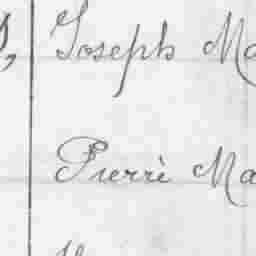 Joseph Ma
Pierrè Ma